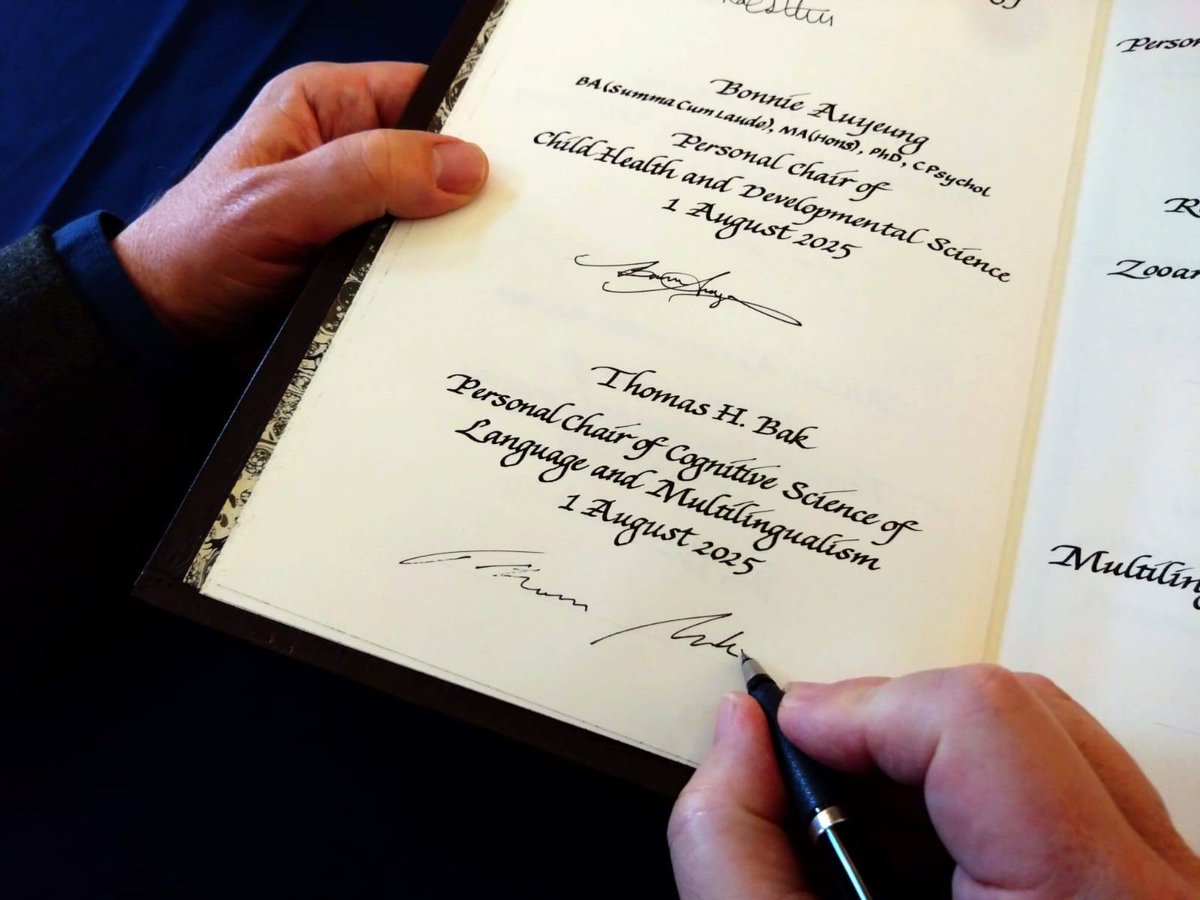 Bonnie Auyeung
BA(Summa Cum Laude), MA(Hons), PhD, CPsychol
Personal Chair of
Child Health and Developmental Science
1 August 2025
Thomas H. Bak
Personal Chair of Cognitive Science of
Language and Multilingualism
1 August 2025